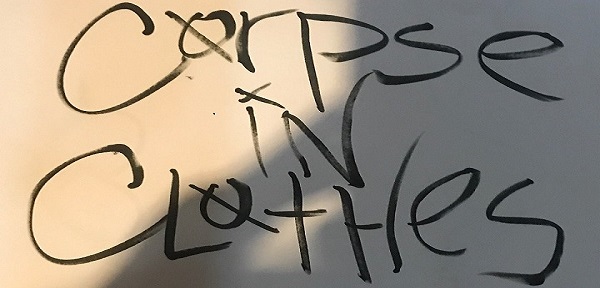 Corpse
iN
CLotHes